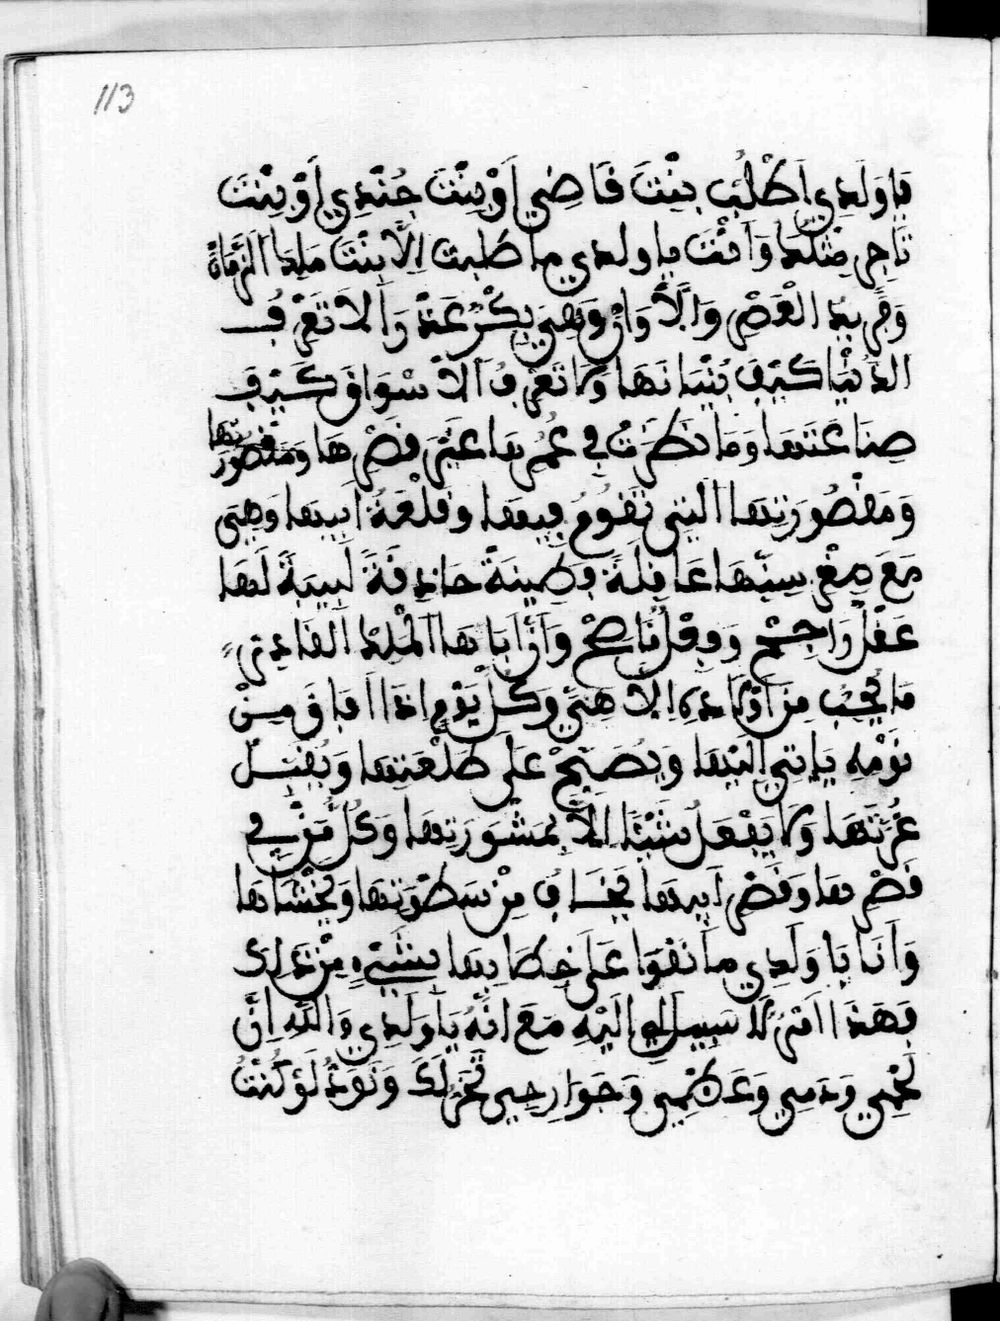 113
يا ولدي اطْلُب بِنْتَ قَاضِي أوْ بِنْتَ جُنْدِي أوْ بِنْتَ
تاجر مثلك وَأنْتَ يا ولدي ما طلبت إلّا بنْتَ ملك الزمان
وَفريد الْعَصْرِ وَالْأَوَانْ وَهِيَ بِكْرْ عَذْرَا لا تَعْرِفُ
الدُنْيا كَيْفَ بُنْيانهَا ولا تعْرِفُ الاسْوَاق كَيْفَ
صِنَاعَتها وما نظَرَتْ في عُمرها غيْرَ قصْرِها ومقصورتها
وَمَقْصُورَتِها التِي تقُومُ فِيها وقلْعَةُ ابيها وَهِيَ
مَعَ صِغْرِ سِنّهَا عَاقِلَة فطِينَةٌ حَاذِقَة لَبِيبَةٌ لَهَا
عَقْلٌ رَاجِحْ وفعْل نَاصِحْ وَأنَّ ابَاها الْمَلِك القادِري
ما يُحِبّ مِن اوْلادِهِ إلّا هِيَ وكُلّ يَوْم اذا افاق مِنْ
نَوْمِهِ يأتِي إليْها وَيُصبّحْ على طلْعَتِها وَيُقبّلْ
غُرّتها ولا يَفْعَلُ شيْئا إلّا بمَشْوَرتِها وَكُلّ مَنْ في
قصْرِها وقصْرِ ابيها يخافُ مِنْ سَطْوَتِها ويخْشاها
وَأنَا يا وَلَدِي ما نَقْوَا على خِطابِها بِشَيْءٍ مِنْ ذَلِكَ
فهَذَا امْرٌ لا سَبِيل لي إليْهِ مَعَ انّهُ يا ولَدِي وَاللهِ انَّ
لحْمِي ودَمِي وَعظْمِي وَجَوارِحِي تحْزِن لَكَ ونَوَدّ لوْ كُنْتُ